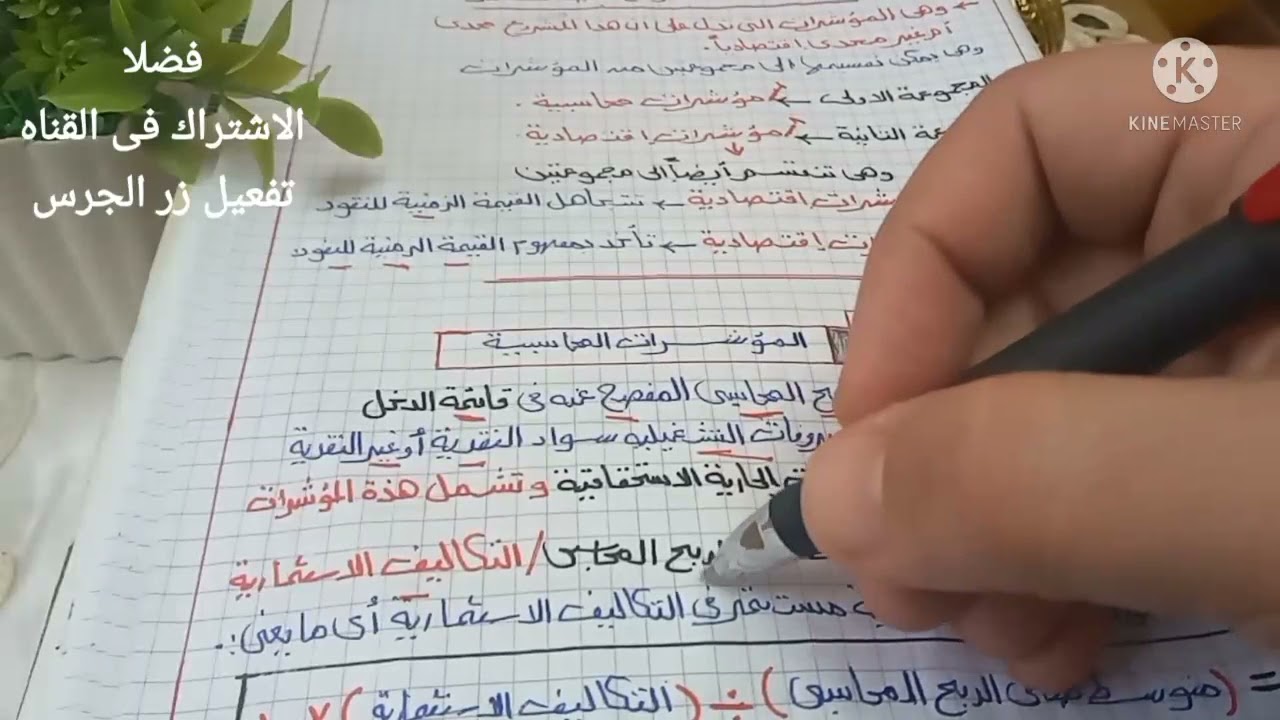 فضلا
الاشتراك فى القناه
تفعيل زر الجرس
KINEMASTER
← وهى المؤشرات التى تدل على ان هذا المشروع مجدى
أم غير مجدى اقتصادياً.
وهى يمكن تقسيمها الى مجموعتين من المؤشرات
المجموعة الاولى ← مؤشرات محاسبية .
الثانية ← مؤشرات اقتصادية .
وهى تنقسم أيضاً الى مجموعتين
اقتصادية ← تتجاهل القيمة الزمنية للنقود
اقتصادية ← تأخذ بمفهوم القيمة الزمنية للنقود
المؤشرات المحاسبية
المحاسبى المفصح عنه فى قائمة الدخل
التشغيلية سواد النقدية أو غير النقدية
الجارية الاستحقاقية وتشمل هذة المؤشرات
الربح المحاسبى / التكاليف الاستثمارية
مستثمر فى التكاليف الاستثمارية أى ما يعنى :.
= (متوسط صافى الربح المحاسبى) ÷ (التكاليف الاستثمارية) ×